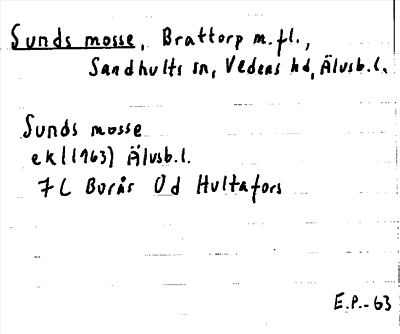 Sunds mosse, Brattorp m.fl.,
Sandhults sn, Vedens hd, Älvsb.l.
Sunds mosse
ekl (1963) Älvsb.l.
7C Borås 0d Hultafors
E.P.-63